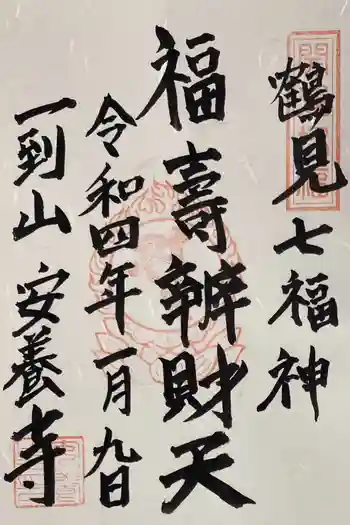 鶴見七福神
福壽辨財天
令和四年一月九日
一到山安養寺